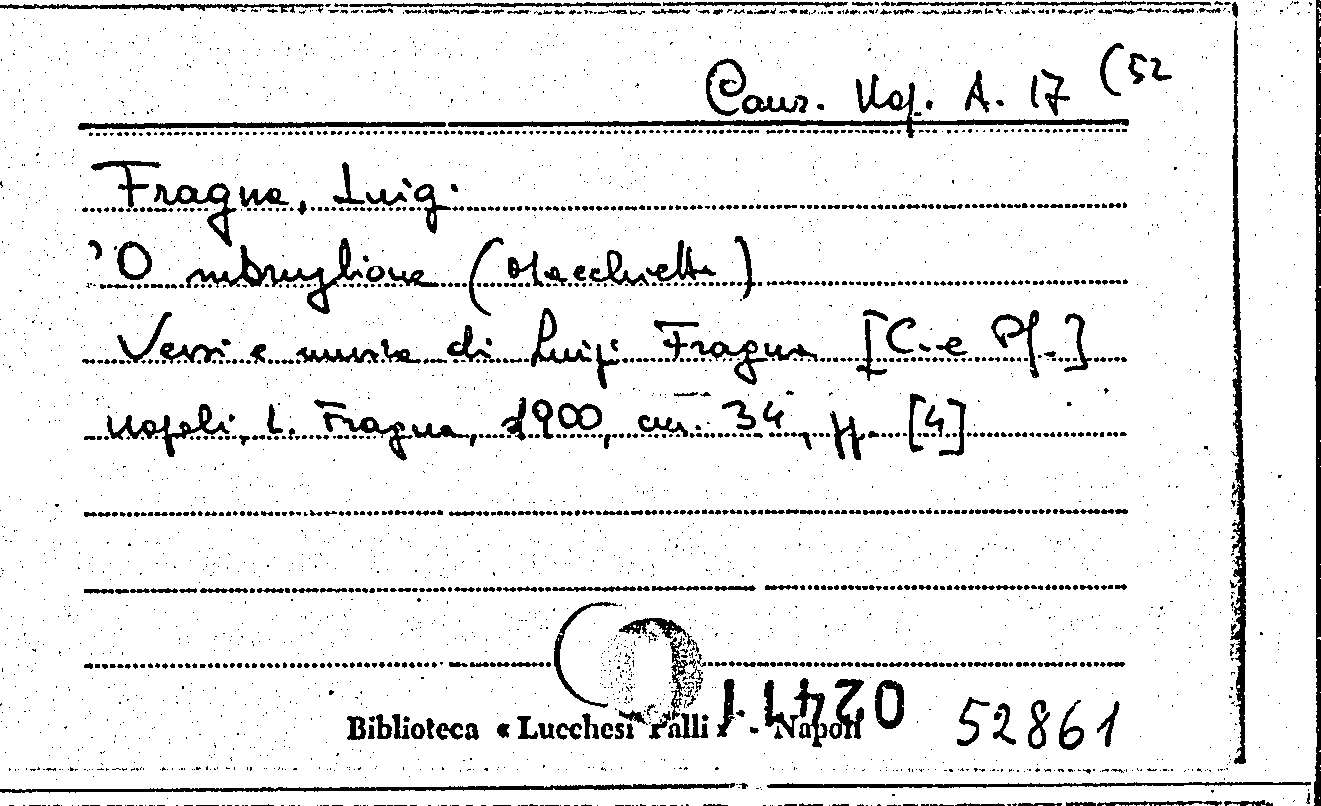 Canz. Nap. A. 17 (52
Fragna, Luigi
'O mbruglione (Macchietta)
Versi e musica di Luigi Fragna [C. e Pf.]
Napoli, L. Fragna, 1900, 34, pp. [4]
02411
Biblioteca « Lucchesi Palli » - Napoli
52861